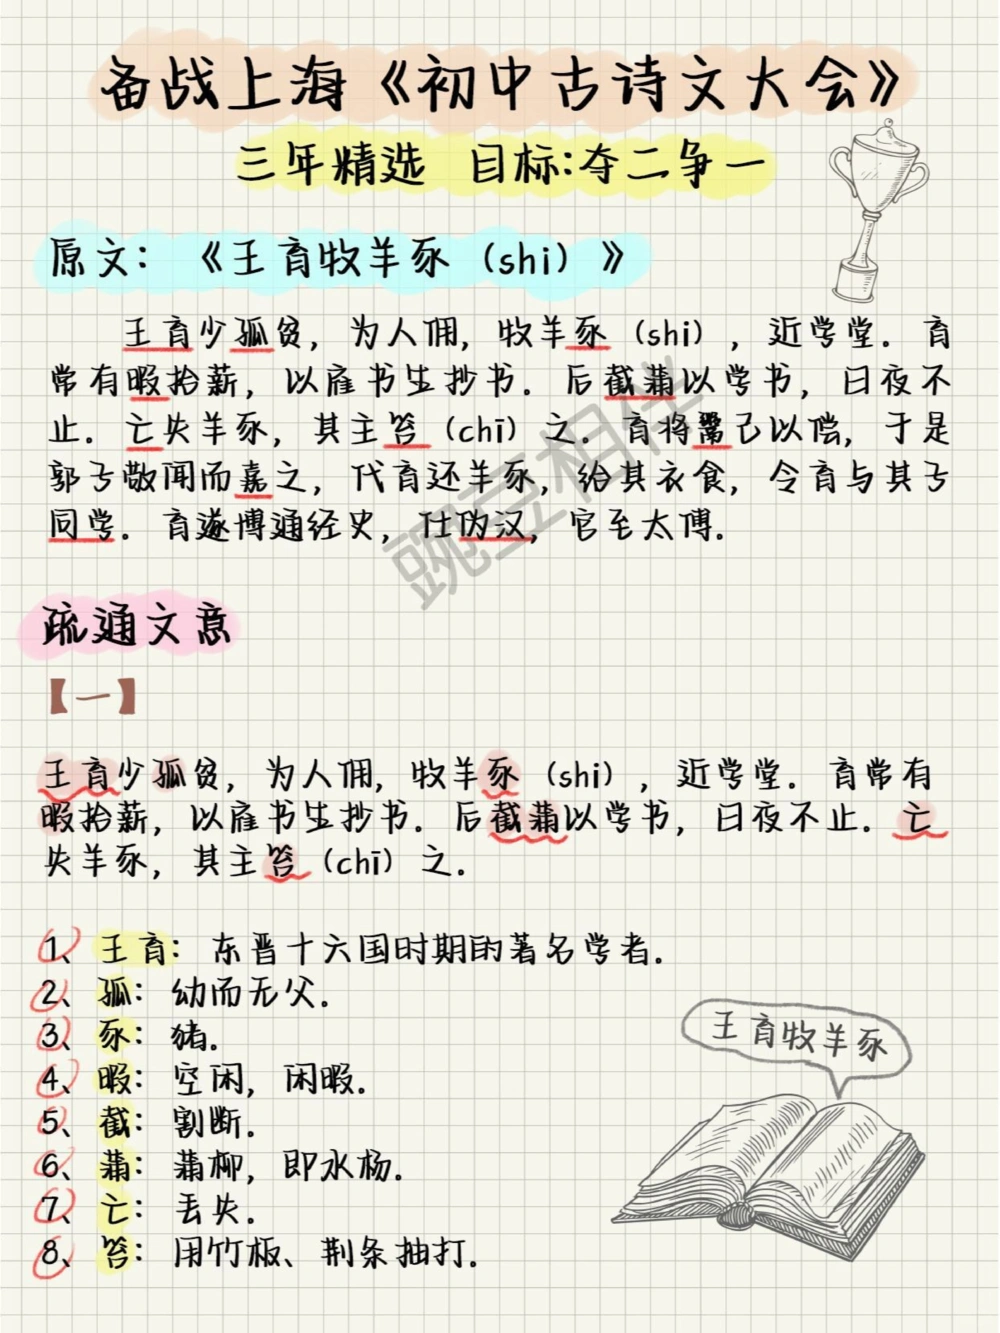 备战上海《初中古诗文大会》
三年精选 目标:夺二争一
原文：《王育牧羊豕（shi）》
王育少孤贫，为人佣，牧羊豕（shi），近学堂．育
常有暇拾薪，以雇书生抄书．后截蒲以学书，日夜不
止．亡失羊豕，其主笞（chī）之．育将鬻己以偿，于是
郭子敬闻而嘉之，代育还羊豕，给其衣食，令育与其子
同学．育遂博通经史，仕伪汉，官至太傅．
豌豆相伴
疏通文意
【一】
王育少孤贫，为人佣，牧羊豕（shi），近学堂．育常有
暇拾薪，以雇书生抄书．后截蒲以学书，日夜不止．亡
失羊豕，其主笞（chī）之．
1、王育：东晋十六国时期的著名学者．
2、孤：幼而无父．
3、豕：猪．
4、暇：空闲，闲暇．
5、截：割断．
6、蒲：蒲柳，即水杨．
7、亡：丢失．
8、笞：用竹板、荆条抽打．
王育牧羊豕